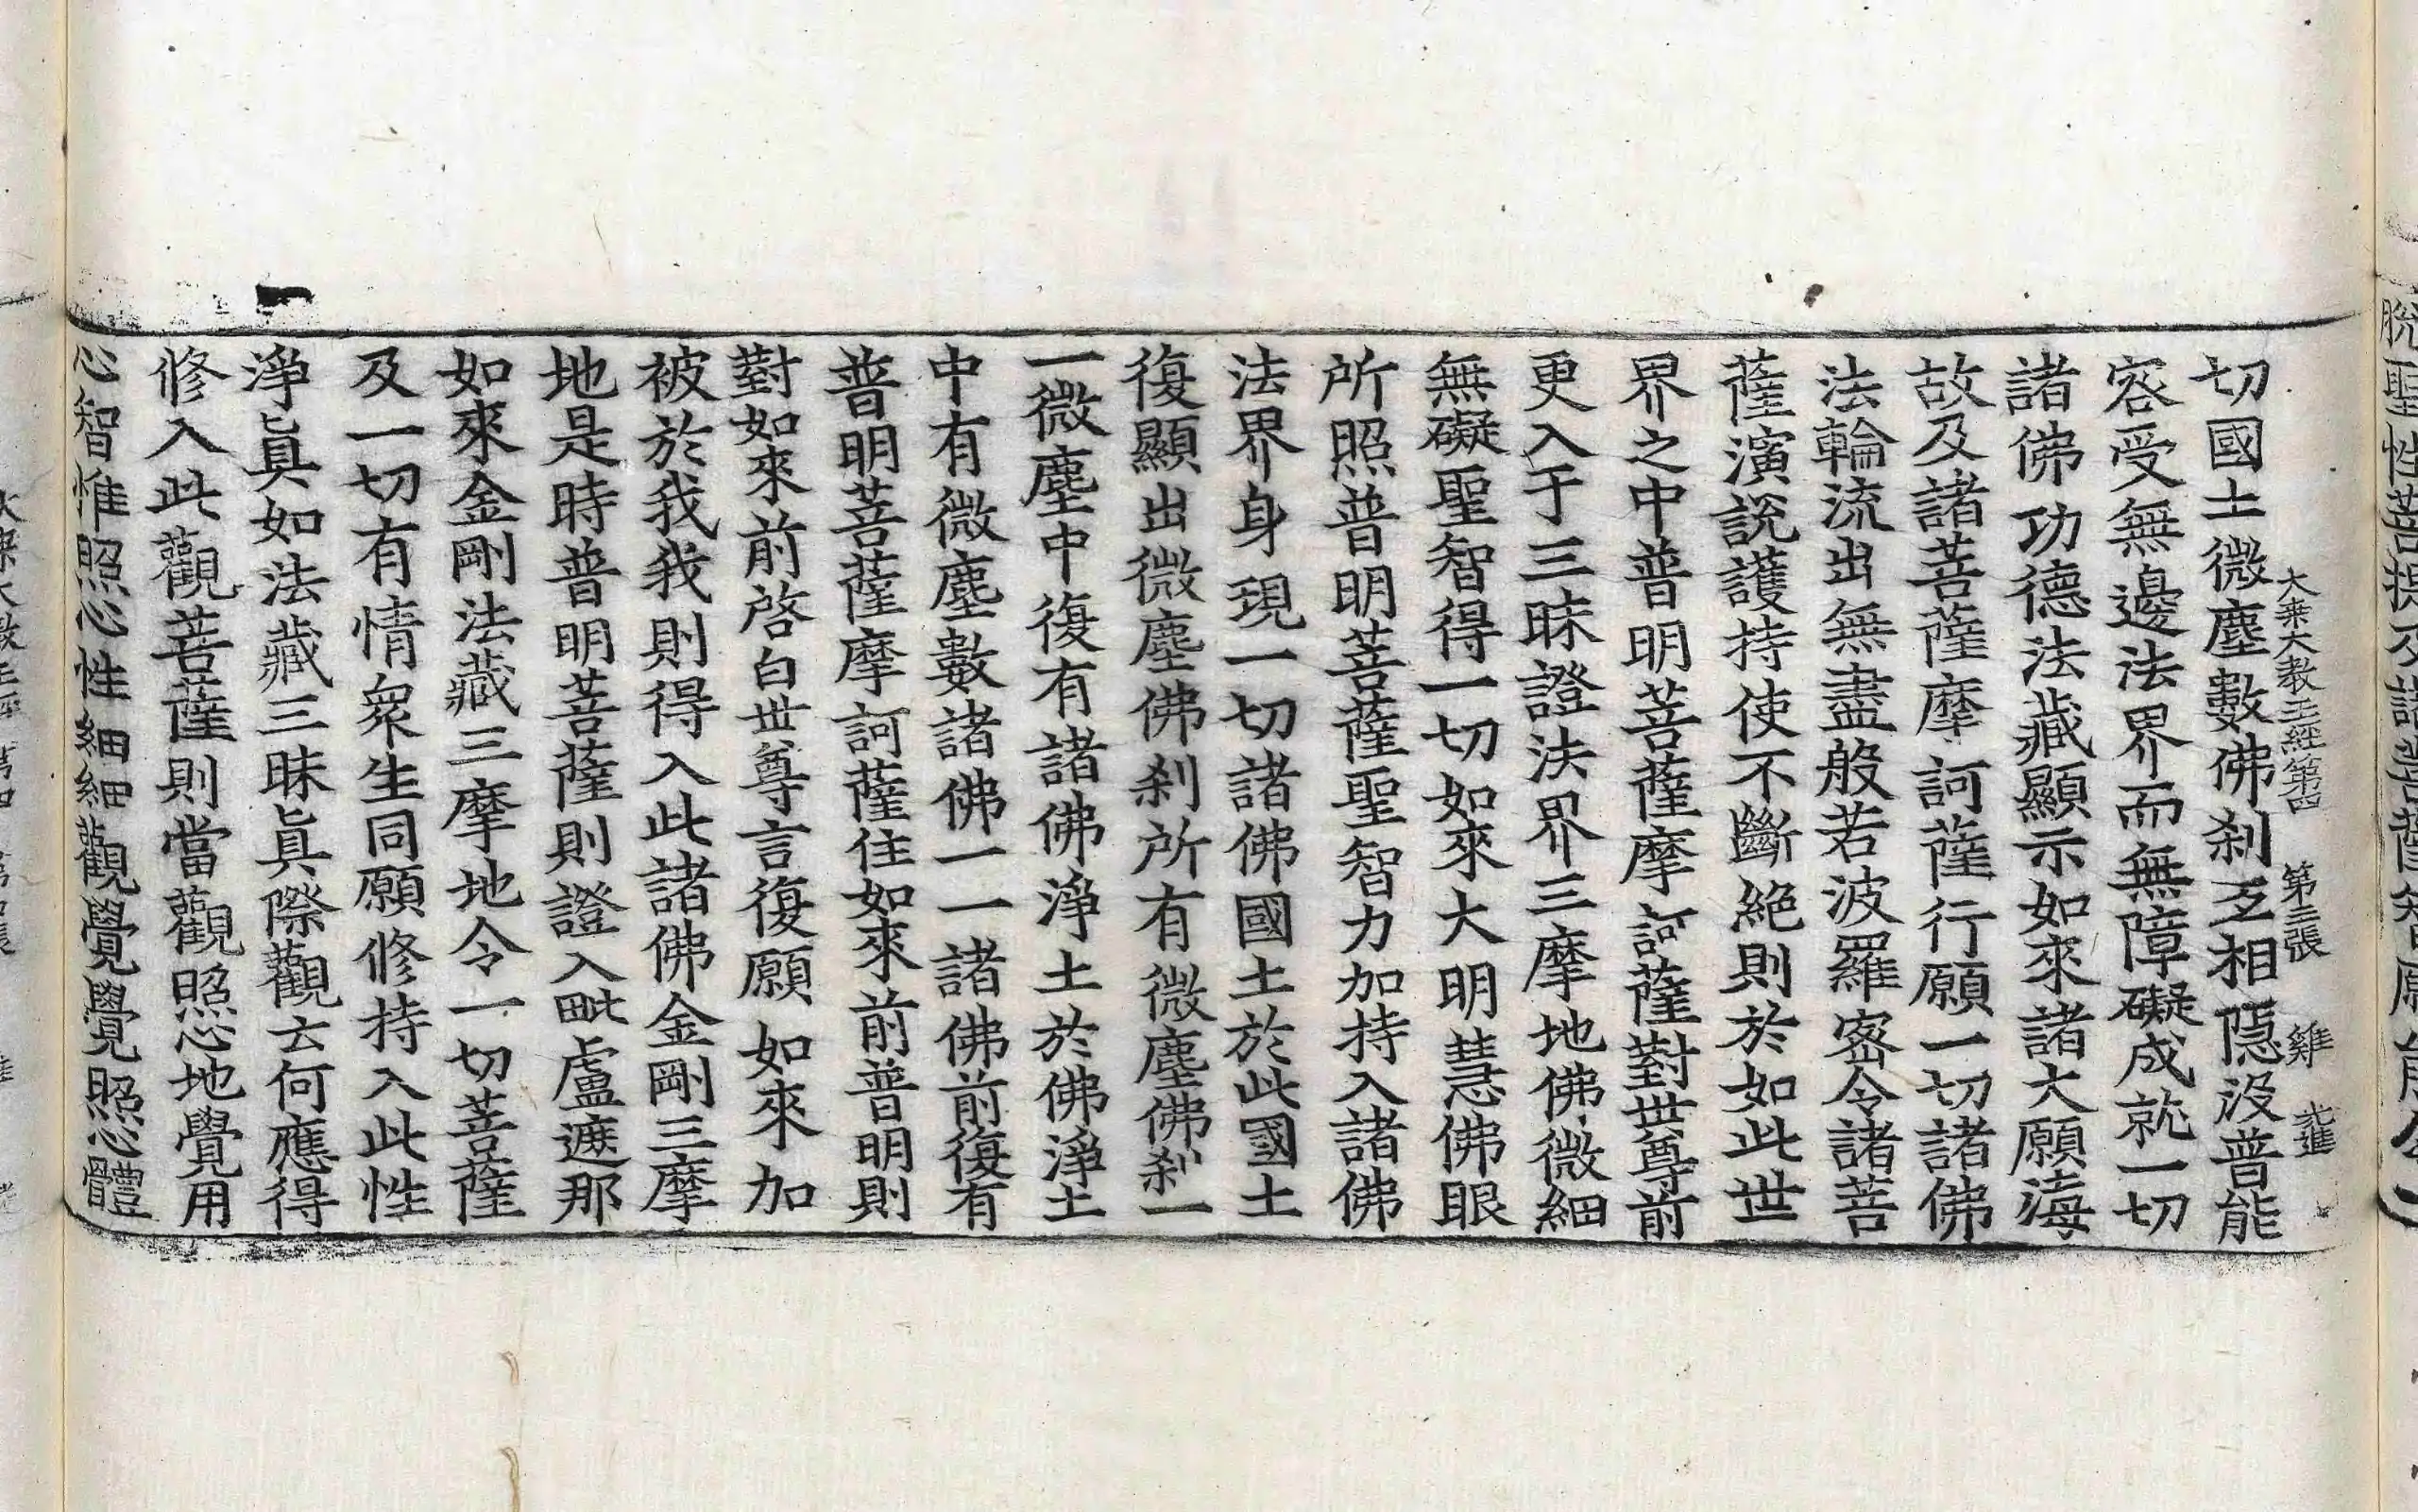 脫聖性菩提及諸菩薩智願
大乗大教王經第四　第三張　雞　光進
切國土微塵數佛刹互相隱没普能
容受無邊法界而無障礙成就一切
諸佛功德法藏顯示如來諸大願海
故及諸菩薩摩訶薩行願一切諸佛
法輪流出無盡般若波羅密令諸菩
薩演説護持使不斷絶則於如此世
界之中普明菩薩摩訶薩對世尊前
更入于三昧證法界三摩地佛微細
無礙聖智得一切如來大明慧佛眼
所照普明菩薩聖智力加持入諸佛
法界身現一切諸佛國土於此國土
復顯出微塵佛刹所有微塵佛刹一
一微塵中復有諸佛淨土於佛淨土
中有微塵數諸佛一一諸佛前復有
普明菩薩摩訶薩住如來前普明則
對如來前啓白世尊言復願如來加
被於我我則得入此諸佛金剛三摩
地是時普明菩薩則證入毗盧遮那
如來金剛法藏三摩地令一切菩薩
及一切有情衆生同願修持入此性
淨眞如法藏三昧眞際觀云何應得
修入此觀菩薩則當觀照心地覺用
心智惟照心性細細觀覺覺照心體